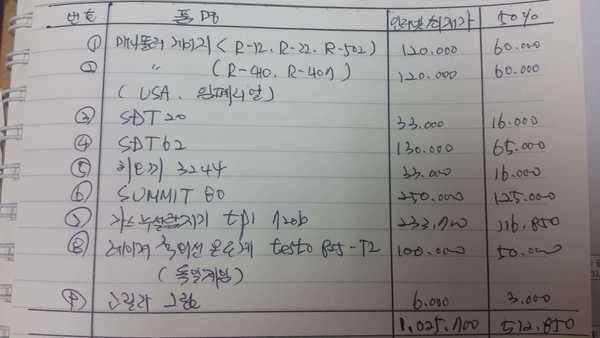 번호 품명 인터넷최저가 50%
① 매니폴더 게이지 < R-12, R-22, R-502) 120.000 60.000
② 〃 ( R-410, R-407) 120.000 60.000
( USA. 임페리얼)
③ SDT20 33.000 16.000
④ SDT62 130.000 65.000
⑤ 3244 33.000 16.000
⑥ SUMMIT 80 250.000 125.000
⑦ 가스누설탐지기 tpi 720b 233,700 116,850
⑧ 레이저 적외선 온도계 testo 825-T2 100.000 50.000
( 독일제임)
⑨ 그릴라 그립 6.000 3.000
1,025,700 512,850